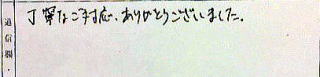 通信欄
丁寧なご対応、ありがとうございました。